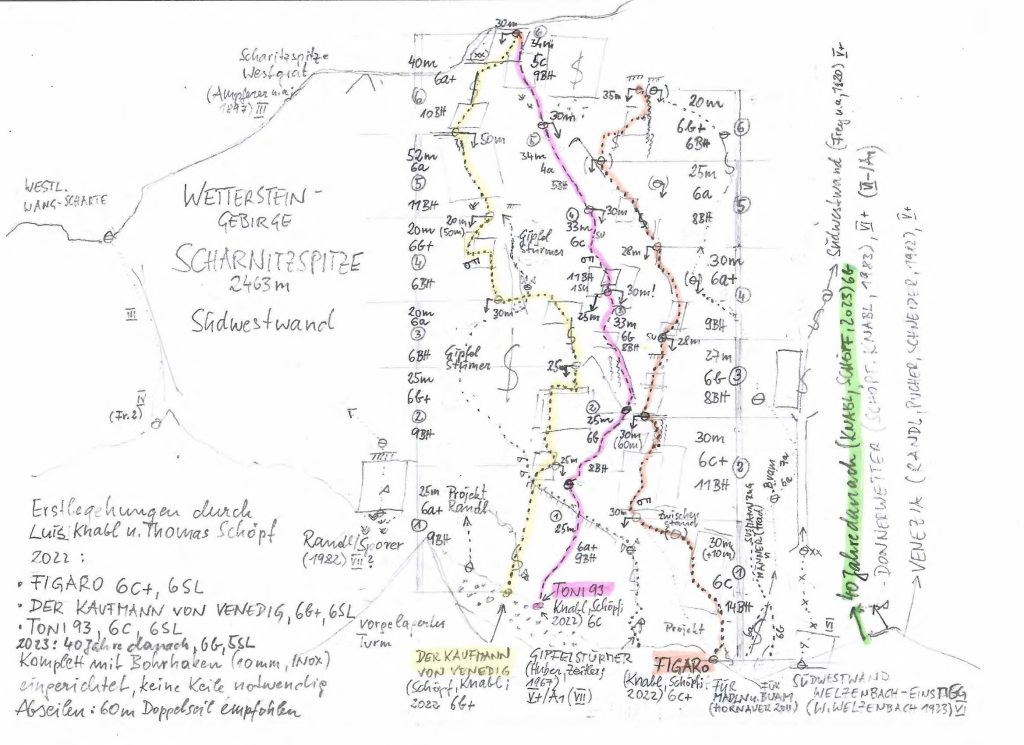 Scharitzspitze
Westgrat
(Ampferer u.a.
1897) III
WESTL.
WANG-SCHARTE
WETTERSTEIN-
GEBIRGE
SCHARNITZSPITZE
2463m
Südwestwand
III
IV
(Fr.2)
Erstbegehungen durch
Luis Knabl u. Thomas Schöpf
2022:
• FIGARO 6C+, 6SL
• DER KAUFMANN VON VENEDIG, 6b+, 6SL
• TONI 93, 6C, 6SL
2023: 40 Jahre danach, 6b, 5SL
Komplett mit Bohrhaken (10mm, INOX)
eingerichtet, keine Keile notwendig
Abseilen: 60m Doppelseil empfohlen
Randl/Sporer
(1982) VII?
vorgelagerter
Turm
40m
6a+
6
10BH
50m
52m
6a
5
11BH
20m
(50m)
20m
6b+
4
6BH
30m
20m
6a
3
6BH
25m
25m
6b+
2
9BH
25m
25m
6a+
1
9BH
Projekt
Randl
Gipfel
Stürmer
Gipfel
Stürmer
30m
(xx)
6
34m
5c
9BH
30m
5
34m
4a
5BH
30m
4
33m
6c
SU
11BH
1SU
30m!
25m
3
33m
6b
8BH
2
25m
6b
8BH
1
25m
6a+
9BH
35m
20m
6b+
6BH
6
25m
6a
8BH
5
28m
30m
6a+
4
9BH
SU
28m
27m
6b
3
8BH
30m
(60m)
30m
6C+
2
11BH
30m
Zwischen
stand
30m
(+10m)
6C
1
14BH
Projekt
DER KAUFMANN
VON VENEDIG
(Schöpf, Knabl;
2022 6b+
TONI 93
Knabl, Schöpf;
2022) 6C
GIPFELSTÜRMER
(Huber, Zeitler;
1967)
V+/A1 (VII)
FIGARO
(Knabl, Schöpf;
2022) 6C+
FÜR
MADLN u. BUAM
(HORNAUER 2011)
FÜR
BUAM
SÜDWESTWAND
WELZENBACH-EINSTIEG
(W. WELZENBACH 1923) VI
MÄNNER (trad)
6b
6a
Buam
7a
xx
VI
Südwestwand (Frey u.a, 1920) V+
40 Jahre danach (KNABL, SCHÖPF, 2023) 6b
DONNERWETTER (SCHÖPF, KNABL, 1983), VI+ (VI-/A1)
VENEZIA (RANDL, PUCHER, SCHNEIDER, 1982), V+